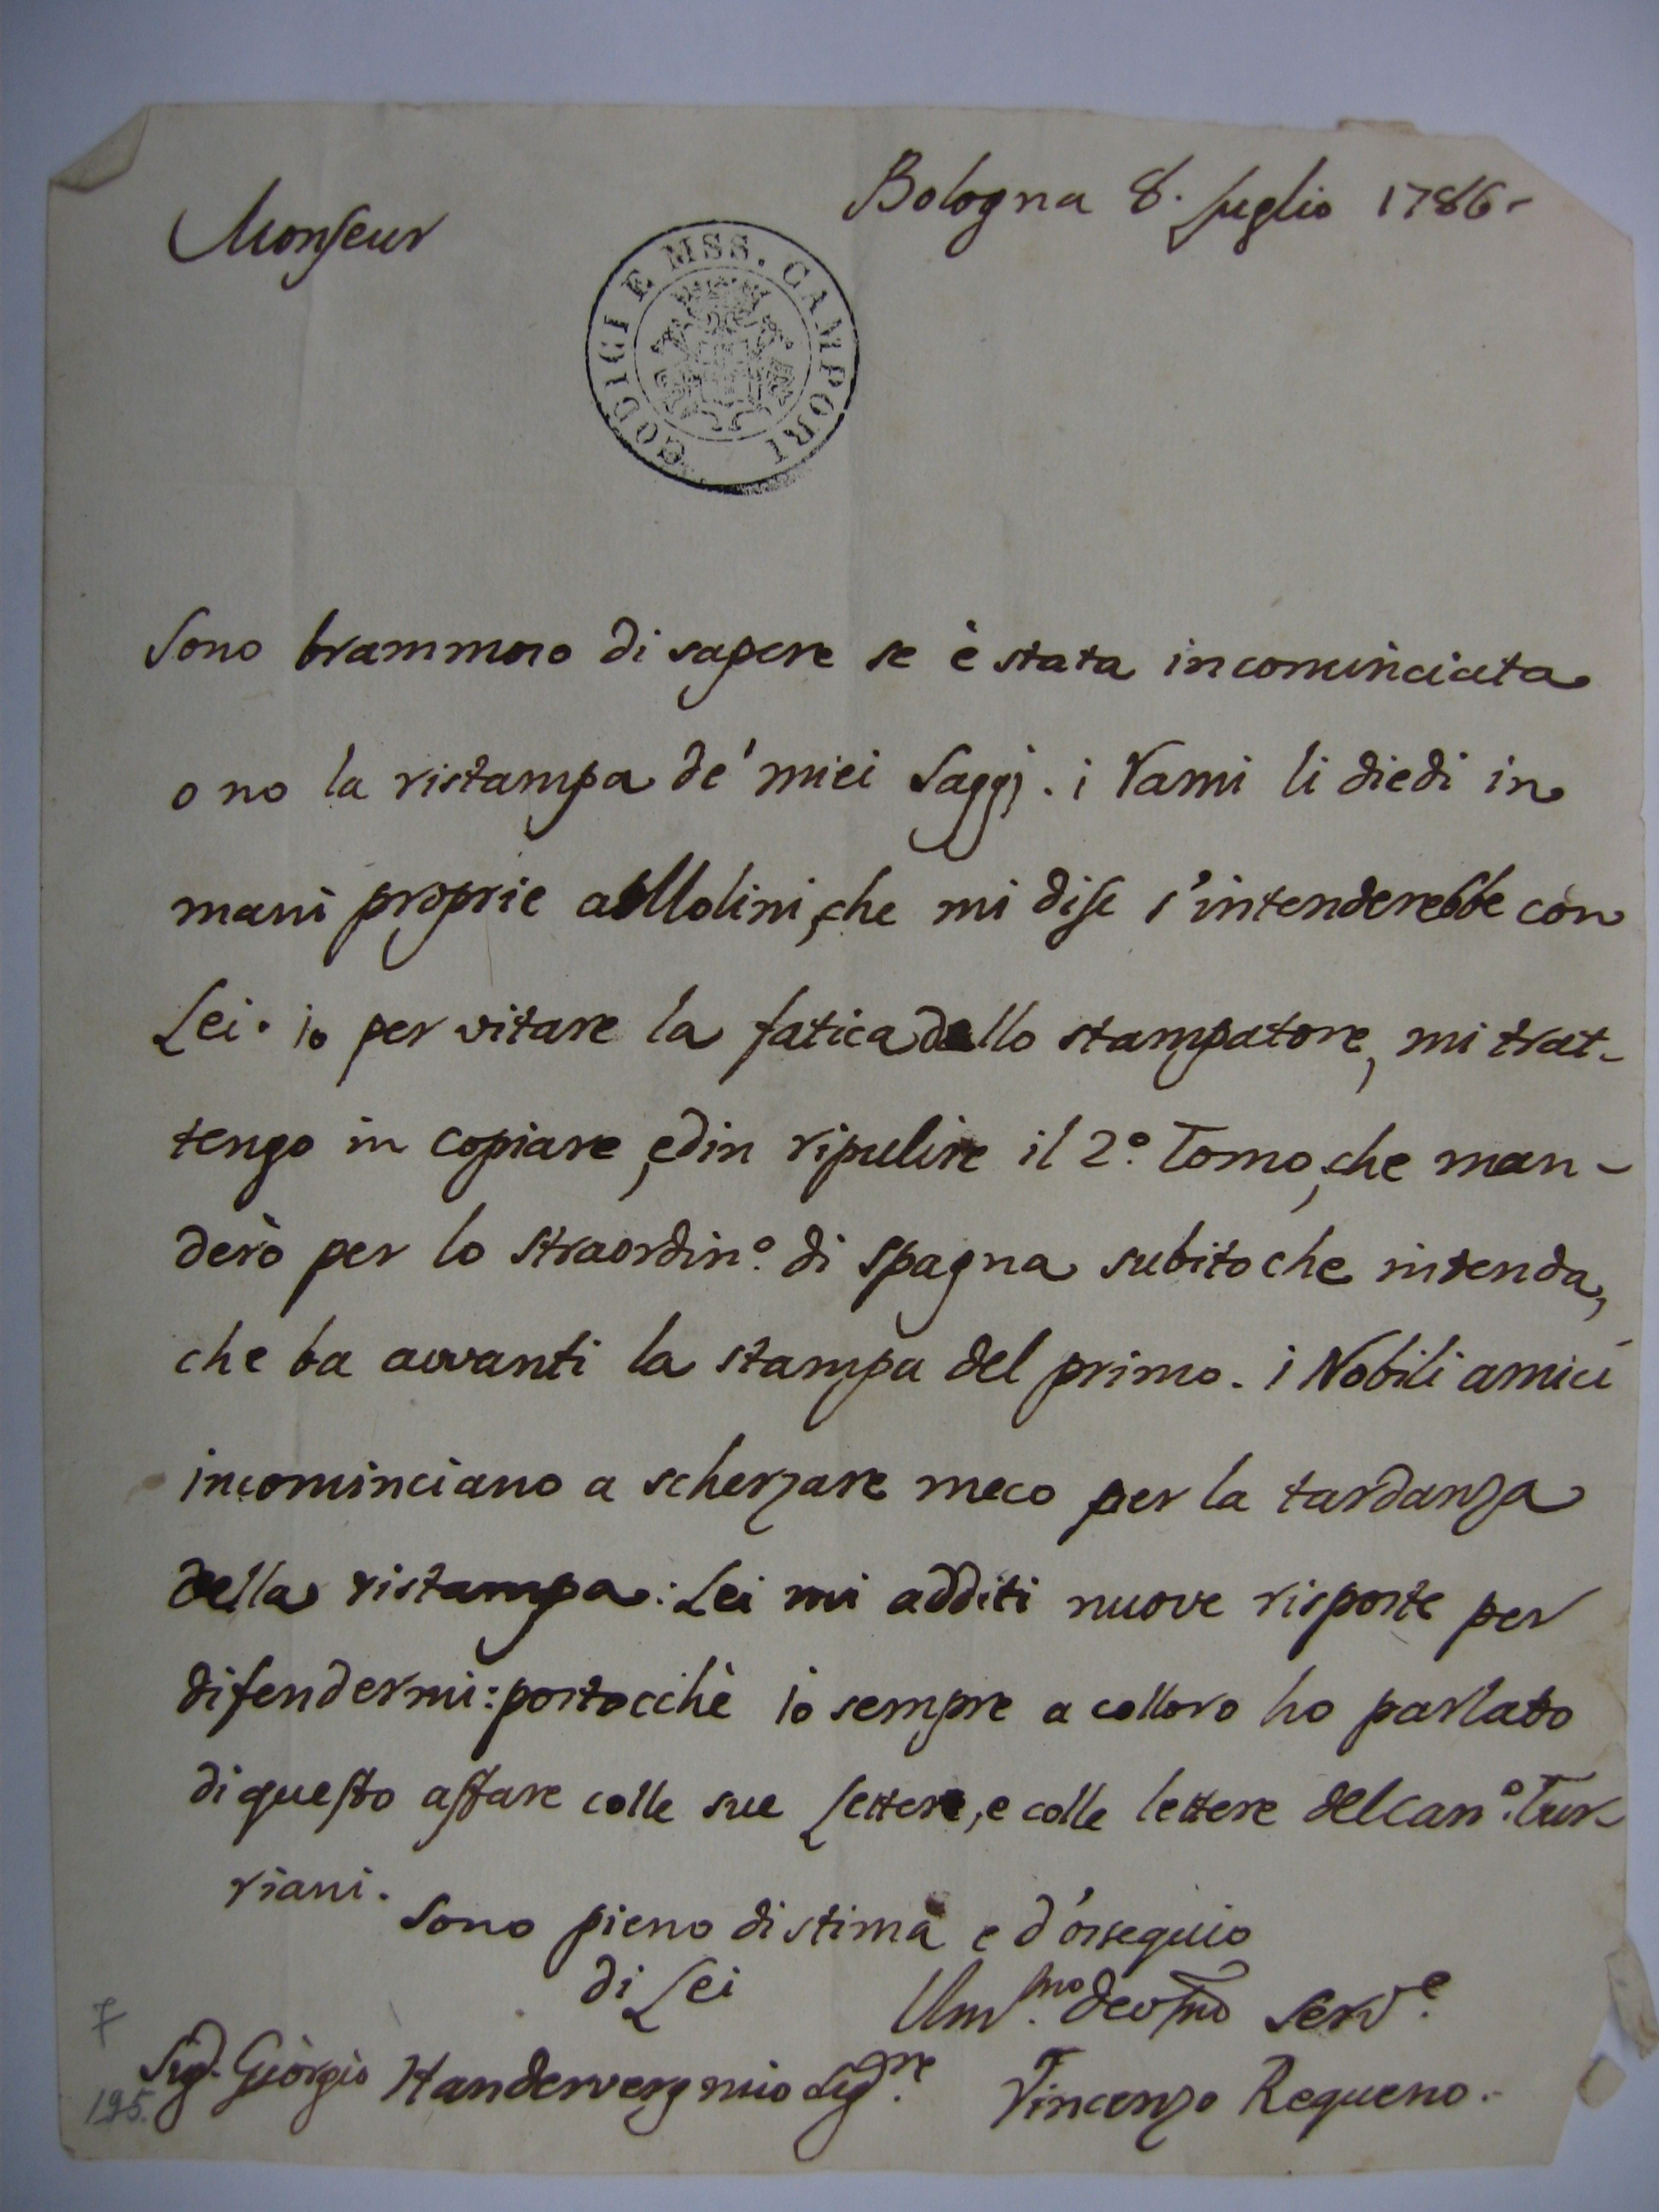 Bologna 8. luglio 1786.
Monseur
CODICI E MSS. CAMPORI
Sono brammoso di sapere se è stata incominciata
o no la ristampa de' miei Saggj. i Rami li diedi in
mani proprie a Molini, che mi disse s'intenderebbe con
Lei. io per vitare la fatica dello stampatore, mi trat-
tengo in copiare, ed in ripulire il 2.º Tomo, che man-
derò per lo straordin.º di Spagna subito che intenda,
che va avvanti la stampa del primo. i Nobili amici
incominciano a scherzare meco per la tardanza
della ristampa: Lei mi additi nuove risposte per
difendermi: postocchè io sempre a colloro ho parlato
di questo affare colle sue Lettere, e colle lettere del Can.º Tur-
riani.
Sono pieno di stima e d'ossequio
di Lei
Um.mo devmo Serv.e
Sigr. Giorgio Handerverg mio Sigre.
Vincenzo Requeno.
7
195.